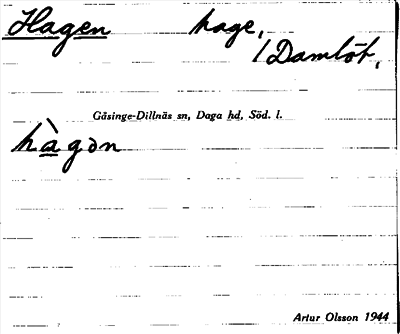 Hagen hage,
/Damlöt,
Gåsinge-Dillnäs sn, Daga hd, Söd. l.
hàgən
Artur Olsson 1944